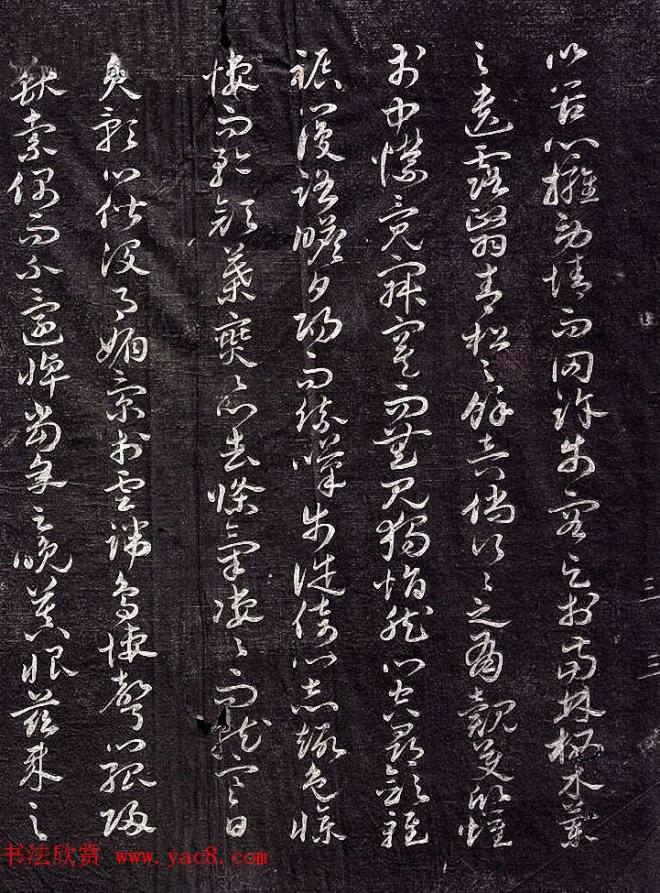 以苦心擁勞情而罔訴步容與於南林栖木蘭
之遺露翳青松之餘陰儻行〻之有覿交欣懼
於中襟竟寂寞而無見獨悁想以空尋斂輕
裾以復路瞻夕陽而流歎步徙倚以忘趣色慘
悽而矜顏葉燮〻以去條氣凄〻而就寒日
負影以偕沒月媚景於雲端鳥悽聲以孤歸
獸索偶而不還悼當年之晚暮恨茲歲之
书法欣赏 www.yac8.com